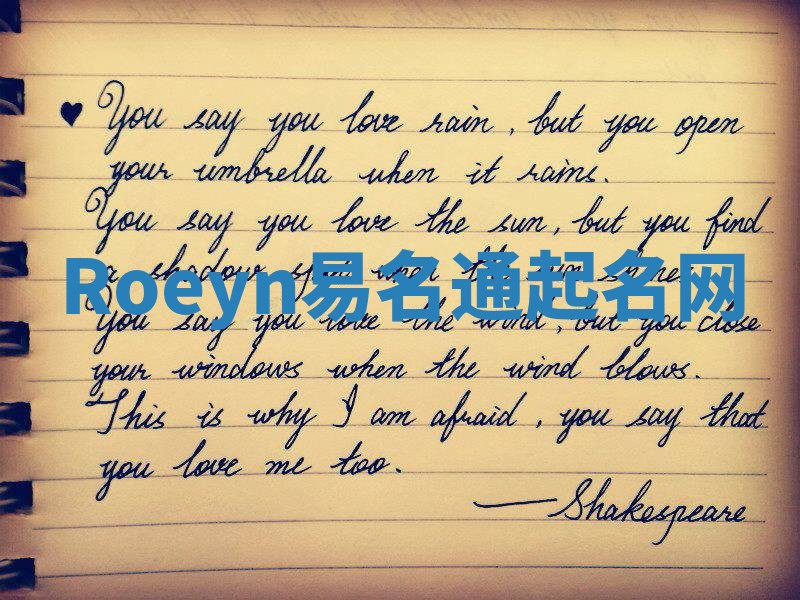 ♥ You say you love rain, but you open
your umbrella when it rains.
You say you love the sun, but you find
a shadow spot when the sun shines.
Roeyn易名通起名网
You say you love the wind, but you close
your windows when the wind blows.
This is why I am afraid, you say that
you love me too.
—Shakespeare